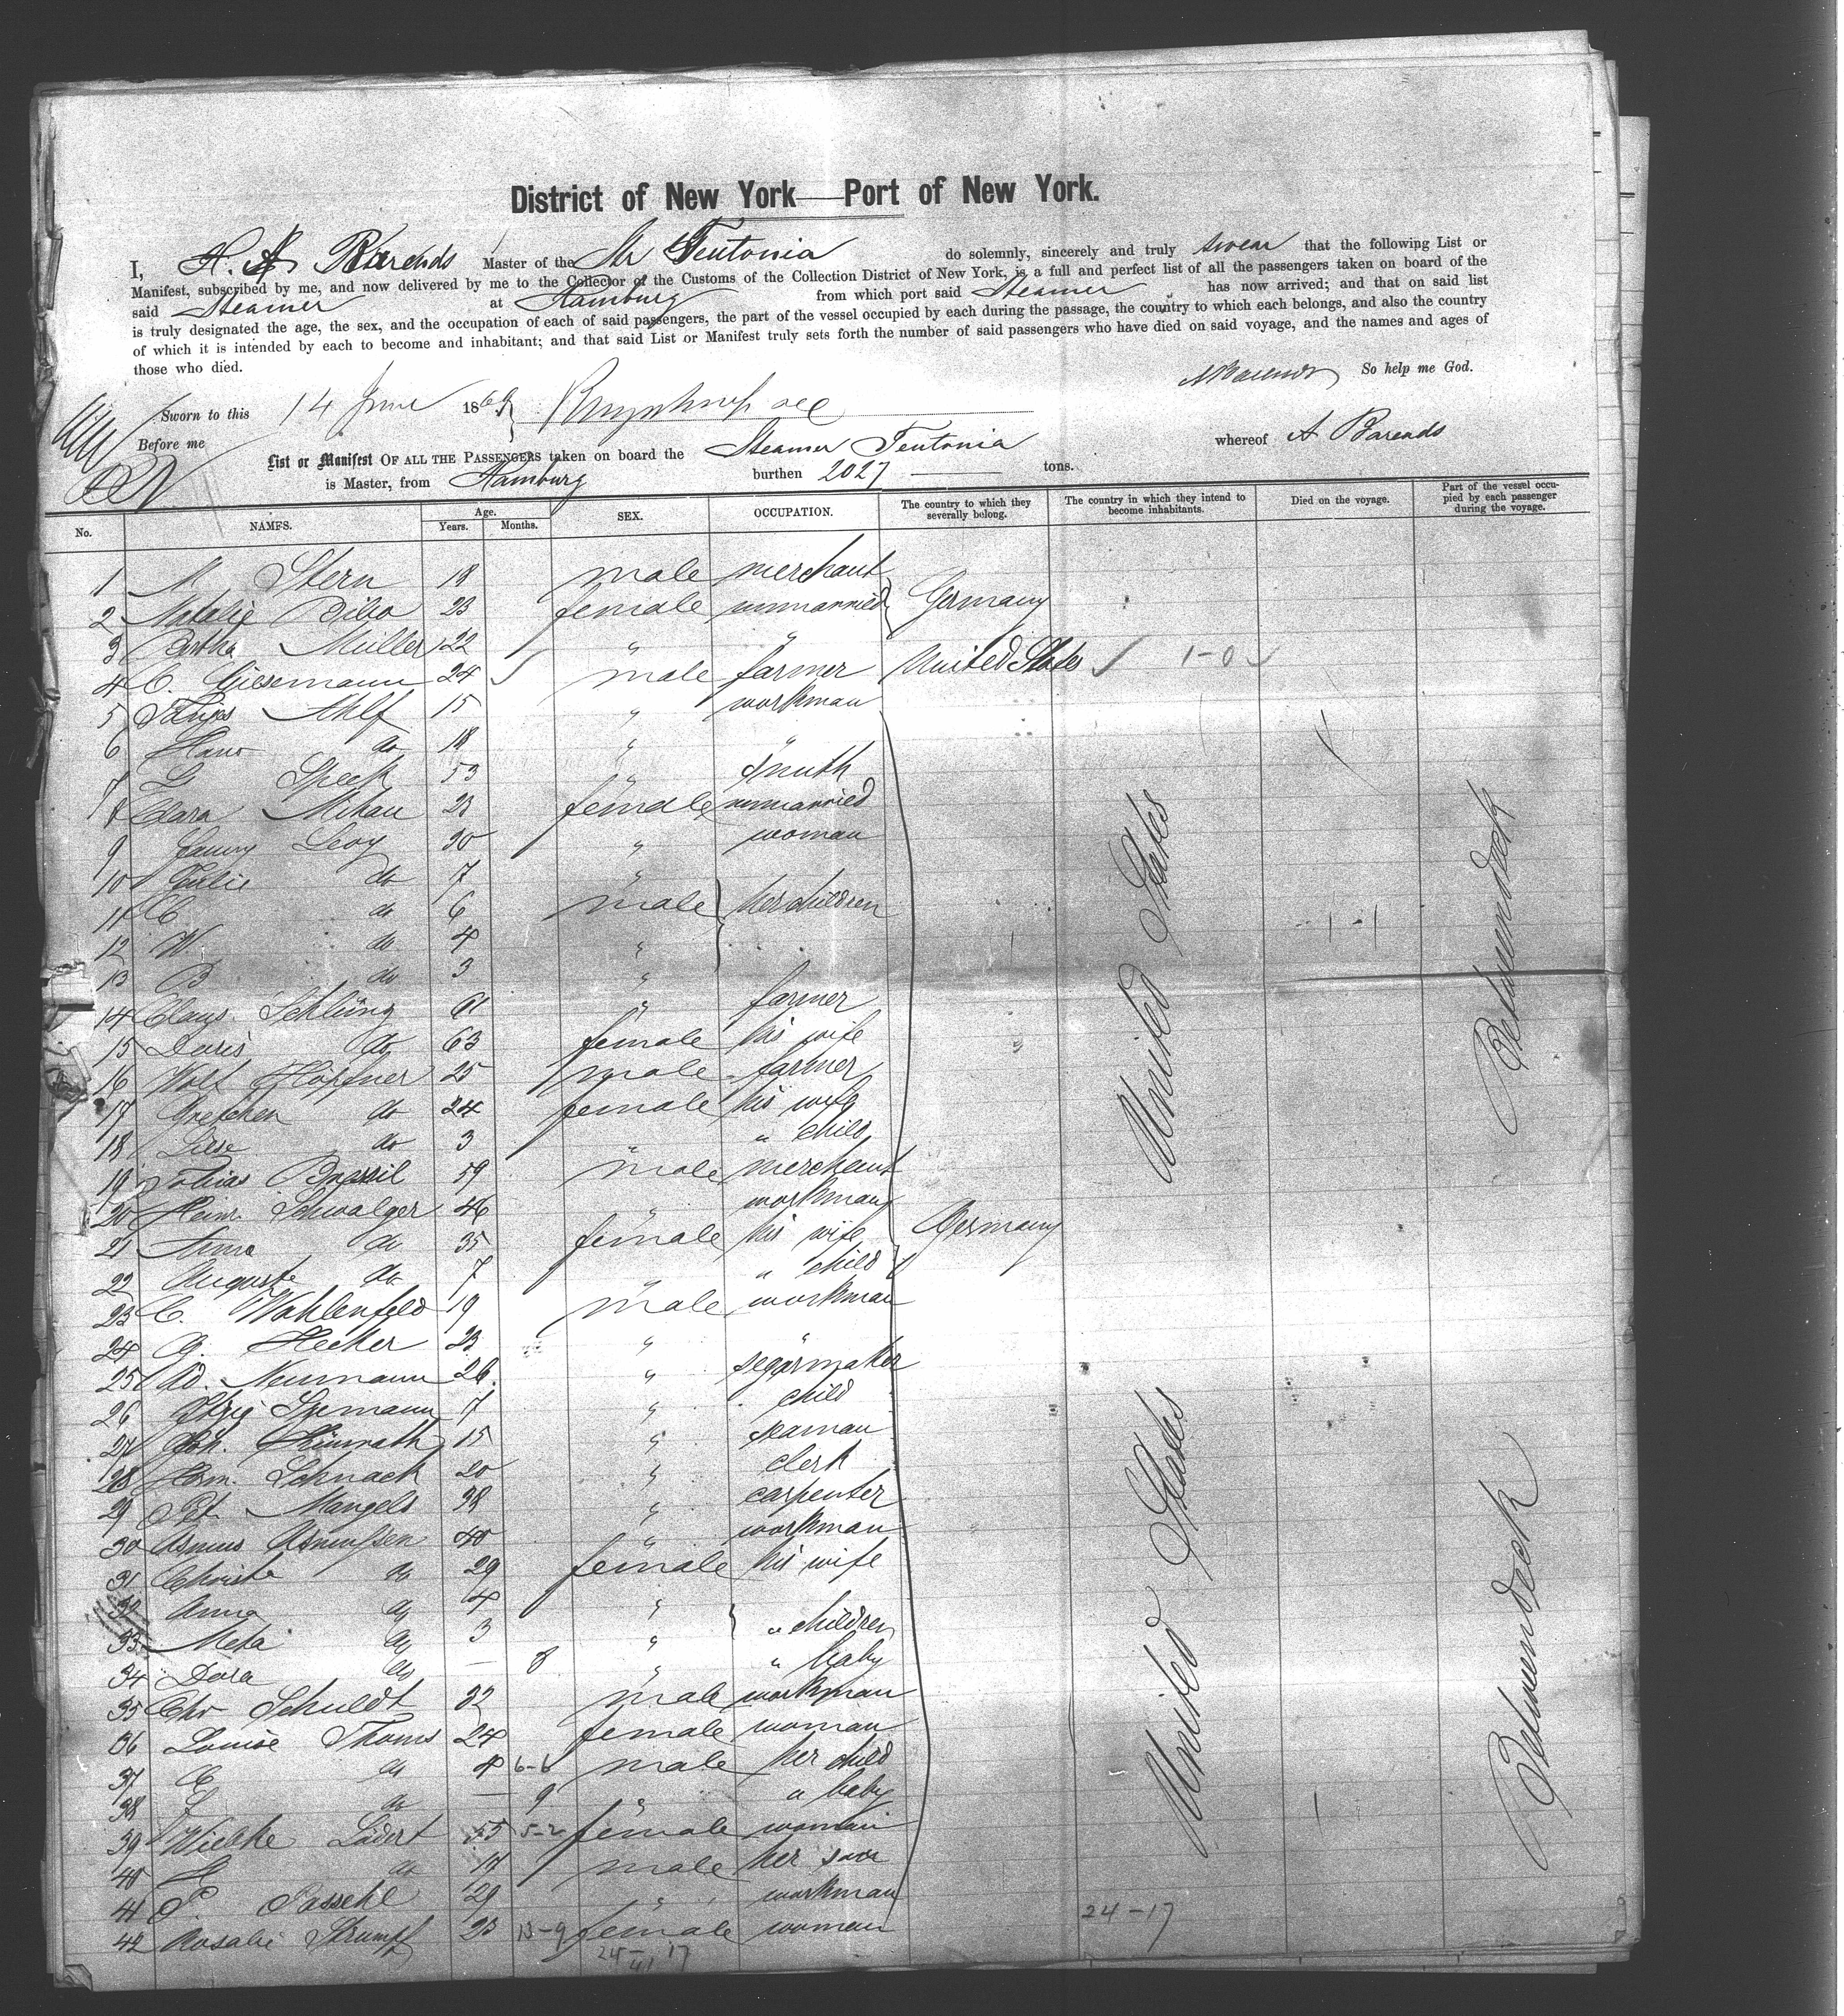 District of New York—Port of New York.
I, H. A. Barends Master of the Str Teutonia do solemnly, sincerely and truly swear that the following List or
Manifest, subscribed by me, and now delivered by me to the Collector of the Customs of the Collection District of New York, is a full and perfect list of all the passengers taken on board of the
said Steamer at Hamburg from which port said Steamer has now arrived; and that on said list
is truly designated the age, the sex, and the occupation of each of said passengers, the part of the vessel occupied by each during the passage, the country to which each belongs, and also the country
of which it is intended by each to become and inhabitant; and that said List or Manifest truly sets forth the number of said passengers who have died on said voyage, and the names and ages of
those who died.
A Barends So help me God.
Sworn to this 14 June 1869
Before me
List or Manifest OF ALL THE PASSENGERS taken on board the Steamer Teutonia whereof A Barends
is Master, from Hamburg burthen 2027 tons.
No. NAMES. Age. Years. Months. SEX. OCCUPATION. The country to which they severally belong. The country in which they intend to become inhabitants. Died on the voyage. Part of the vessel occupied by each passenger during the voyage.
1 M Stern 18 male merchant
2 Natalie Bibo 23 female unmarried Germany
3 Bertha Müller 22 " "
4 C. Giesemann 24 male farmer United States 1-0
5 Ahlf 15 " workman
6 Hans do 18 " "
7 L Speck 53 " smith
8 Clara Mihau 23 female unmarried
9 Fanny Levy 30 " woman
10 Julie do 7 "
11 C do 6 male her children
12 W. do 4 "
13 B do 3 "
14 Claus Schlüng 61 " farmer
15 Doris do 63 female his wife
16 Wolf Höpfner 25 male farmer
17 Gretchen do 24 female his wife
18 Liese do 3 " " child
19 Tobias Brassil 59 male merchant
20 Heinr. Schwalger 46 " workman
21 Anna do 35 female his wife Germany
22 Auguste do 7 " " child
23 C. Wohlenfeld 19 male workman
24 G. Hecker 23 " "
25 Ad. Neumann 26 " segarmaker
26 Itzig 7 " child
27 Joh. Heinrath 15 " seaman
28 Herm. Schnack 20 " clerk
29 Pet. Mangels 38 " carpenter
30 Asmus Asmussen 40 " workman
31 Christe do 29 female his wife
32 Anna do 4 "
33 Meta do 3 " " children
34 Dora do — 8 " " baby
35 Chr Schuldt 32 male workman
36 Louise Thoms 24 female woman
37 C do 4 6-6 male her child
38 do — 9 " " baby
39 Wiebke Lädert 55 5-2 female woman
40 do 17 male her son
41 P. Passehl 29 " workman
42 Rosalie Strumpf 23 13-9 female woman
United States
Betweendeck
United States
Betweendeck
24-17
24-17
41